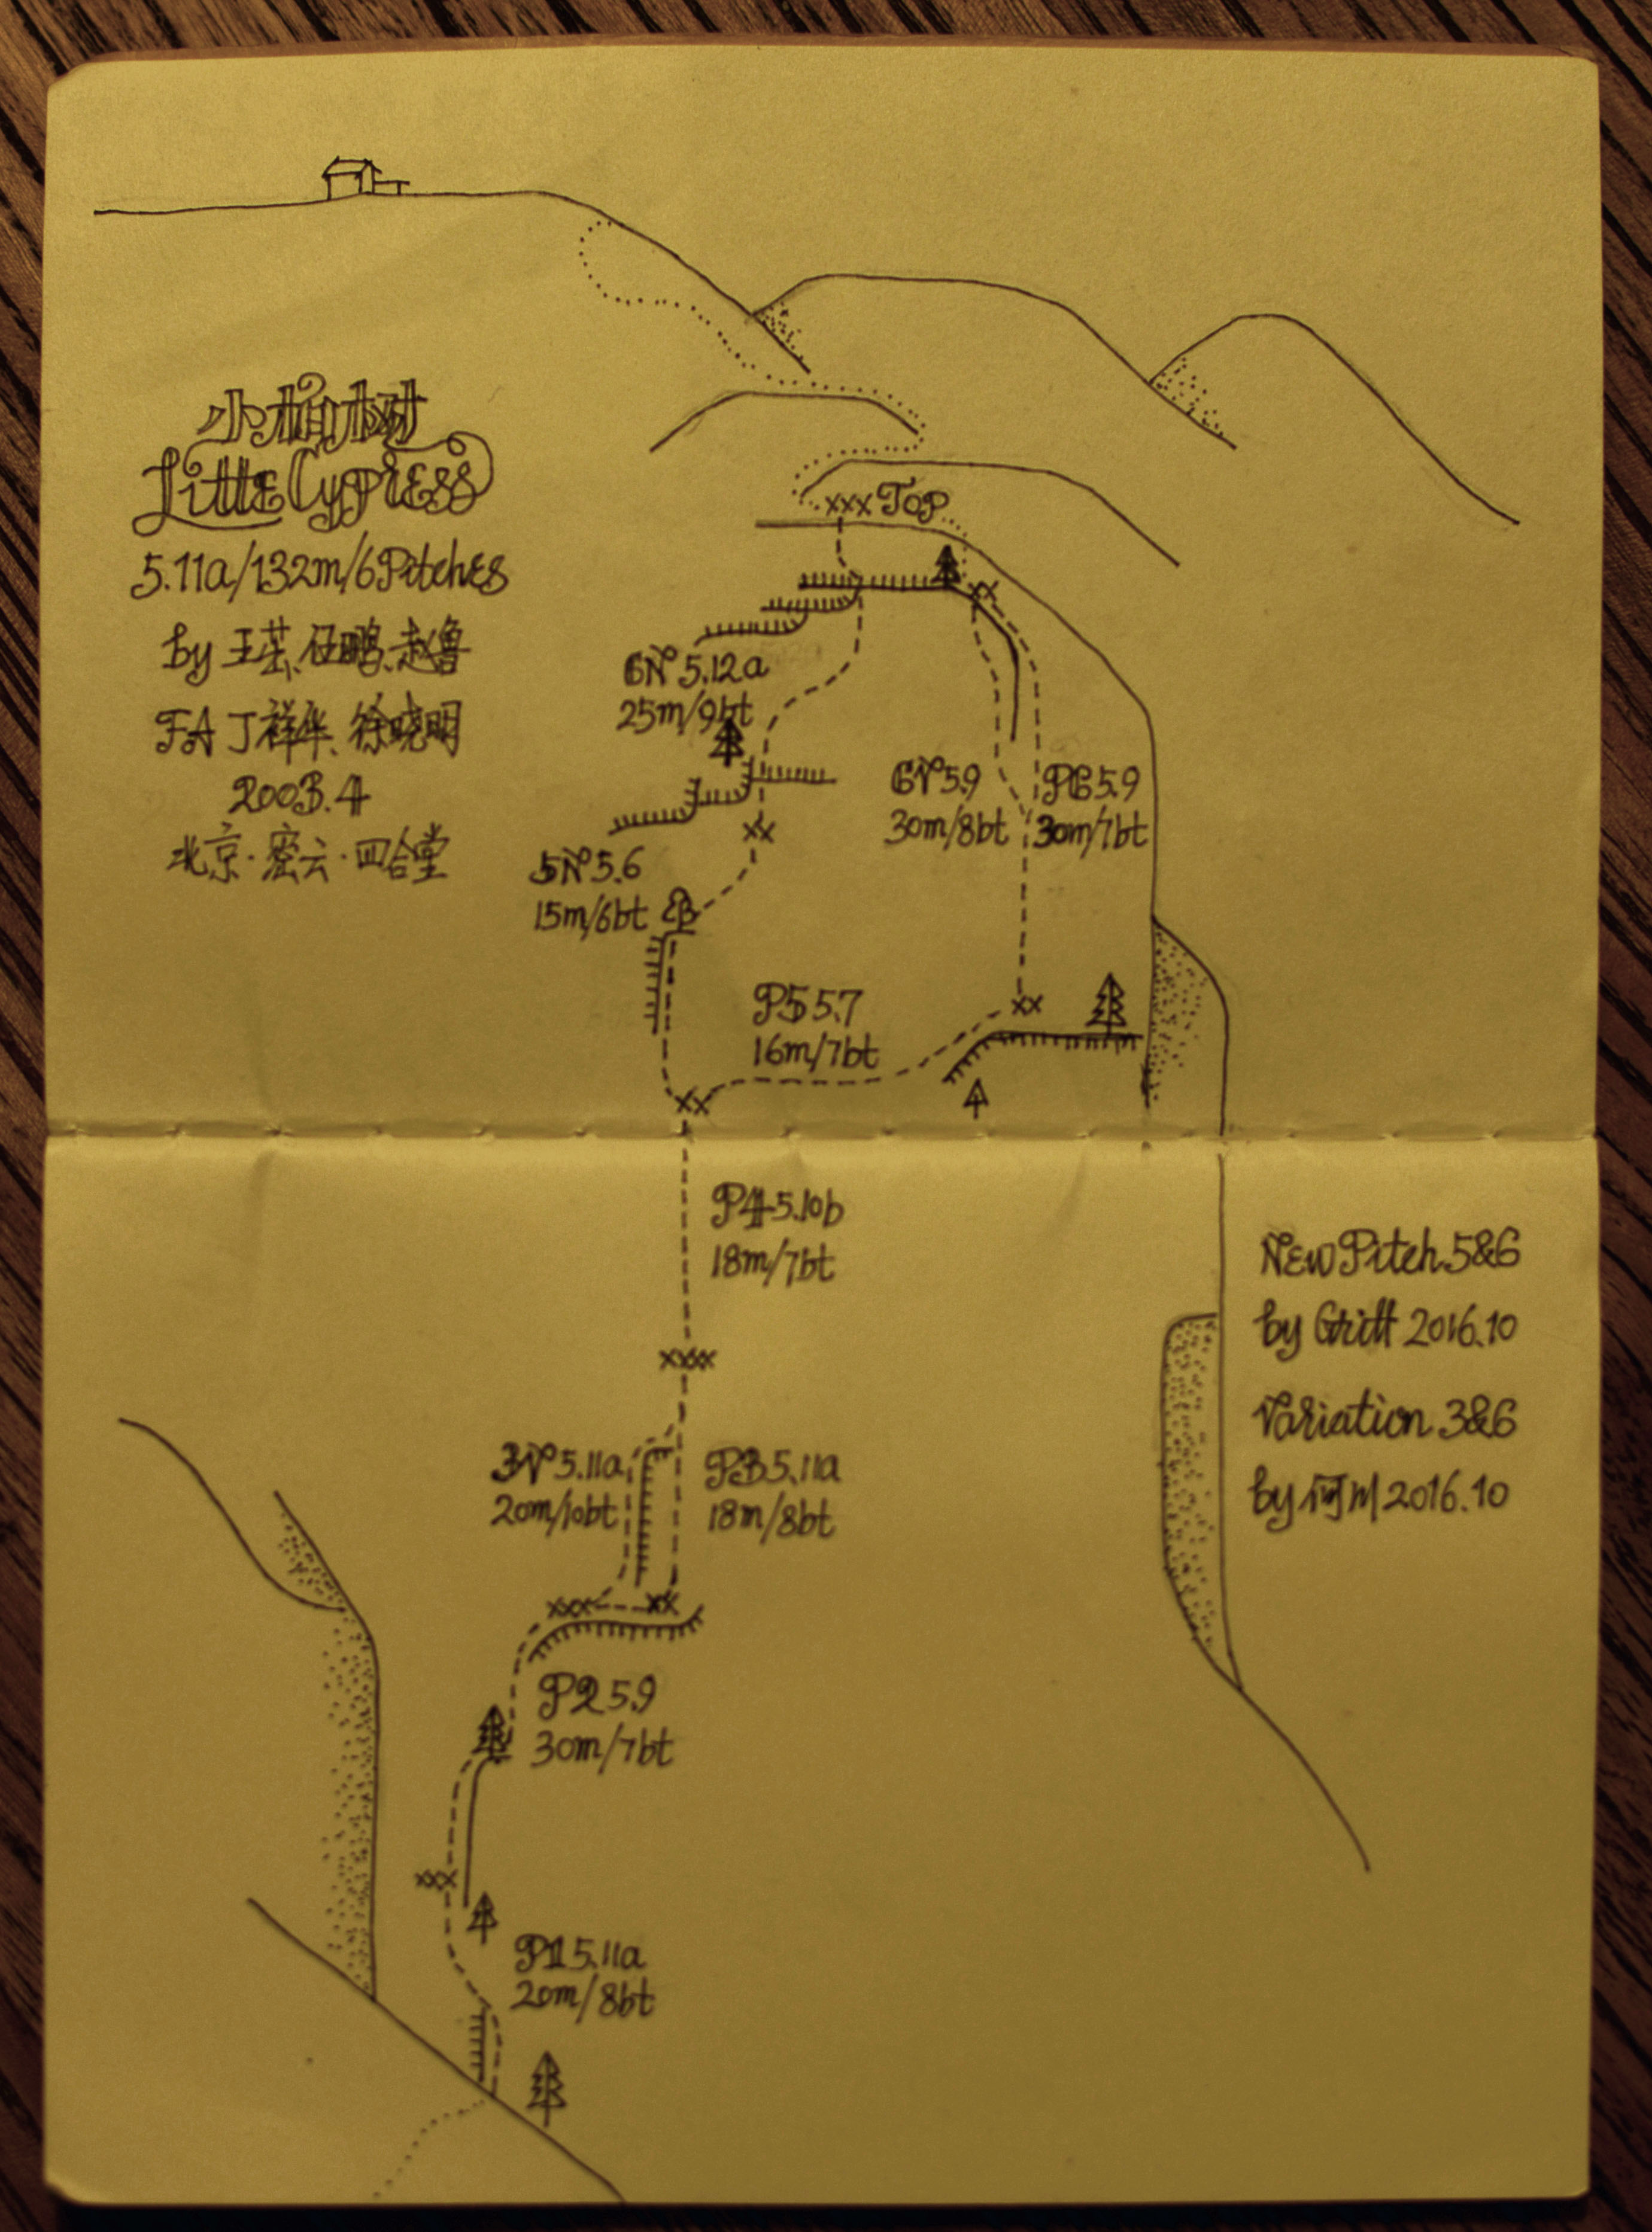 小柏树
Little Cypress
5.11a/132m/6Pitches
by 王茁、伍鹏、赵鲁
FA 丁祥华、徐晓明
2003.4
北京·密云·四合堂
xxx TOP
xx
6N 5.12a
25m/9bt
6V 5.9
30m/8bt
P6 5.9
30m/7bt
xx
5N 5.6
15m/6bt
P5 5.7
16m/7bt
xx
xx
P4 5.10b
18m/7bt
xxx
3V 5.11a
20m/10bt
P3 5.11a
18m/8bt
xxx
xx
P2 5.9
30m/7bt
xxx
P1 5.11a
20m/8bt
New Pitch 5&6
by Griff 2016.10
Variation 3&6
by 阿川 2016.10